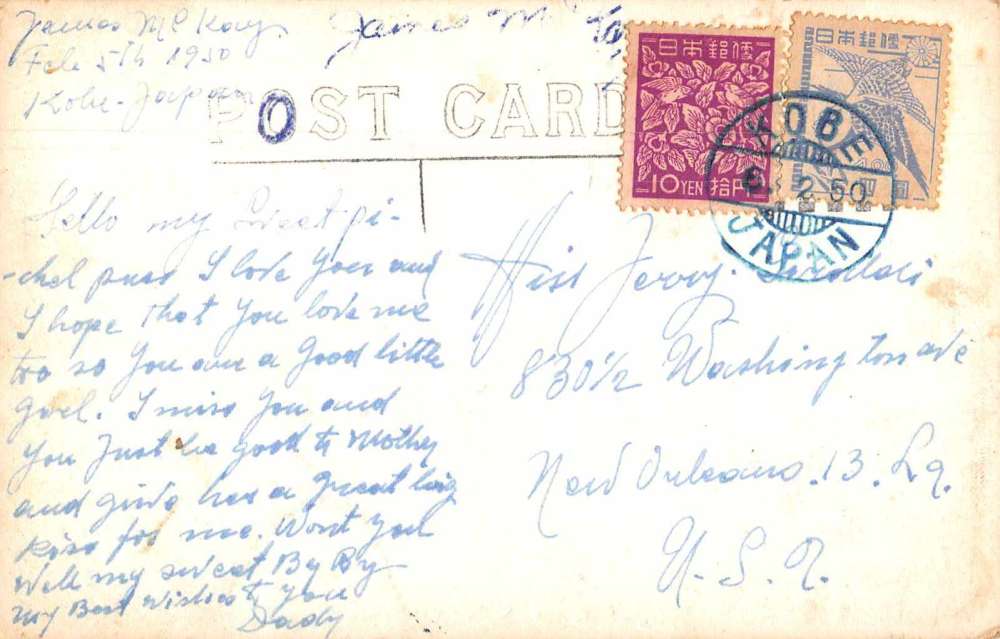 James Mc Kay
Feb 5th 1950
Kobe-Japan
James Mc
POST CARD
日本郵便
10 YEN 拾円
日本郵便
4.00
KOBE
2.50
JAPAN
Hello my Sweet pi-
-ckel puss I love you and
I hope that you love me
too so you are a good little
goel. I miss you and
you Just be good to Mother
and give her a great big
kiss for me. Wont you
Well my sweet By By
My Best wishes to you
Dady
Miss Jerry
830 1/2 Washington ave
New Orleans. 13. La.
U. S. A.